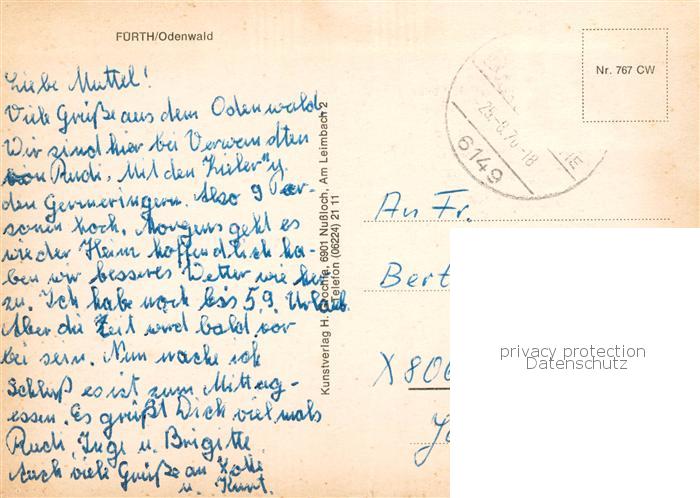 FÜRTH/Odenwald
Liebe Muttel!
Viele Grüße aus dem Odenwald
Wir sind hier bei Verwandten
von Rudi. Mit den
den Germeringern. Also 9 Per-
sonen hoch. Morgens geht es
wieder Heim hoffendlich ha-
ben wir besseres Wetter wie her
zu. Ich habe noch bis 5.9. Urlaub.
Aber die Zeit wird bald vor
bei sein. Nun mache ich
Schluß es ist zum Mittag-
essen. Es grüßt Dich vielmals
Rudi, Inge u. Brigitte
Auch viele Grüße an Lotte
u. Kurt.
Kunstverlag H. 6901 Nußloch, Am Leimbach 2
Telefon (06224) 21 11
Nr. 767 CW
6149
An Fr.
Bert
X 806
privacy protection
Datenschutz